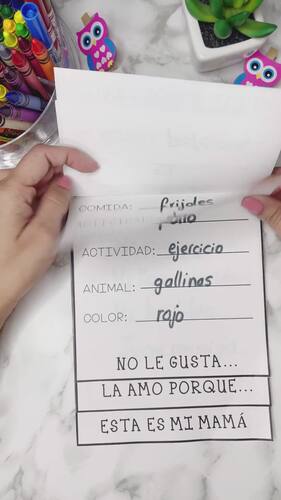 COMIDA: frijoles
ACTIVIDAD: ejercicio
ANIMAL: gallinas
COLOR: rojo
NO LE GUSTA...
LA AMO PORQUE...
ESTA ES MI MAMÁ